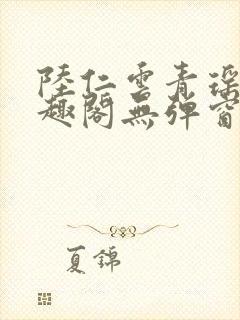 陸仁雲青瑤
趣閣無彈窗
夏錦